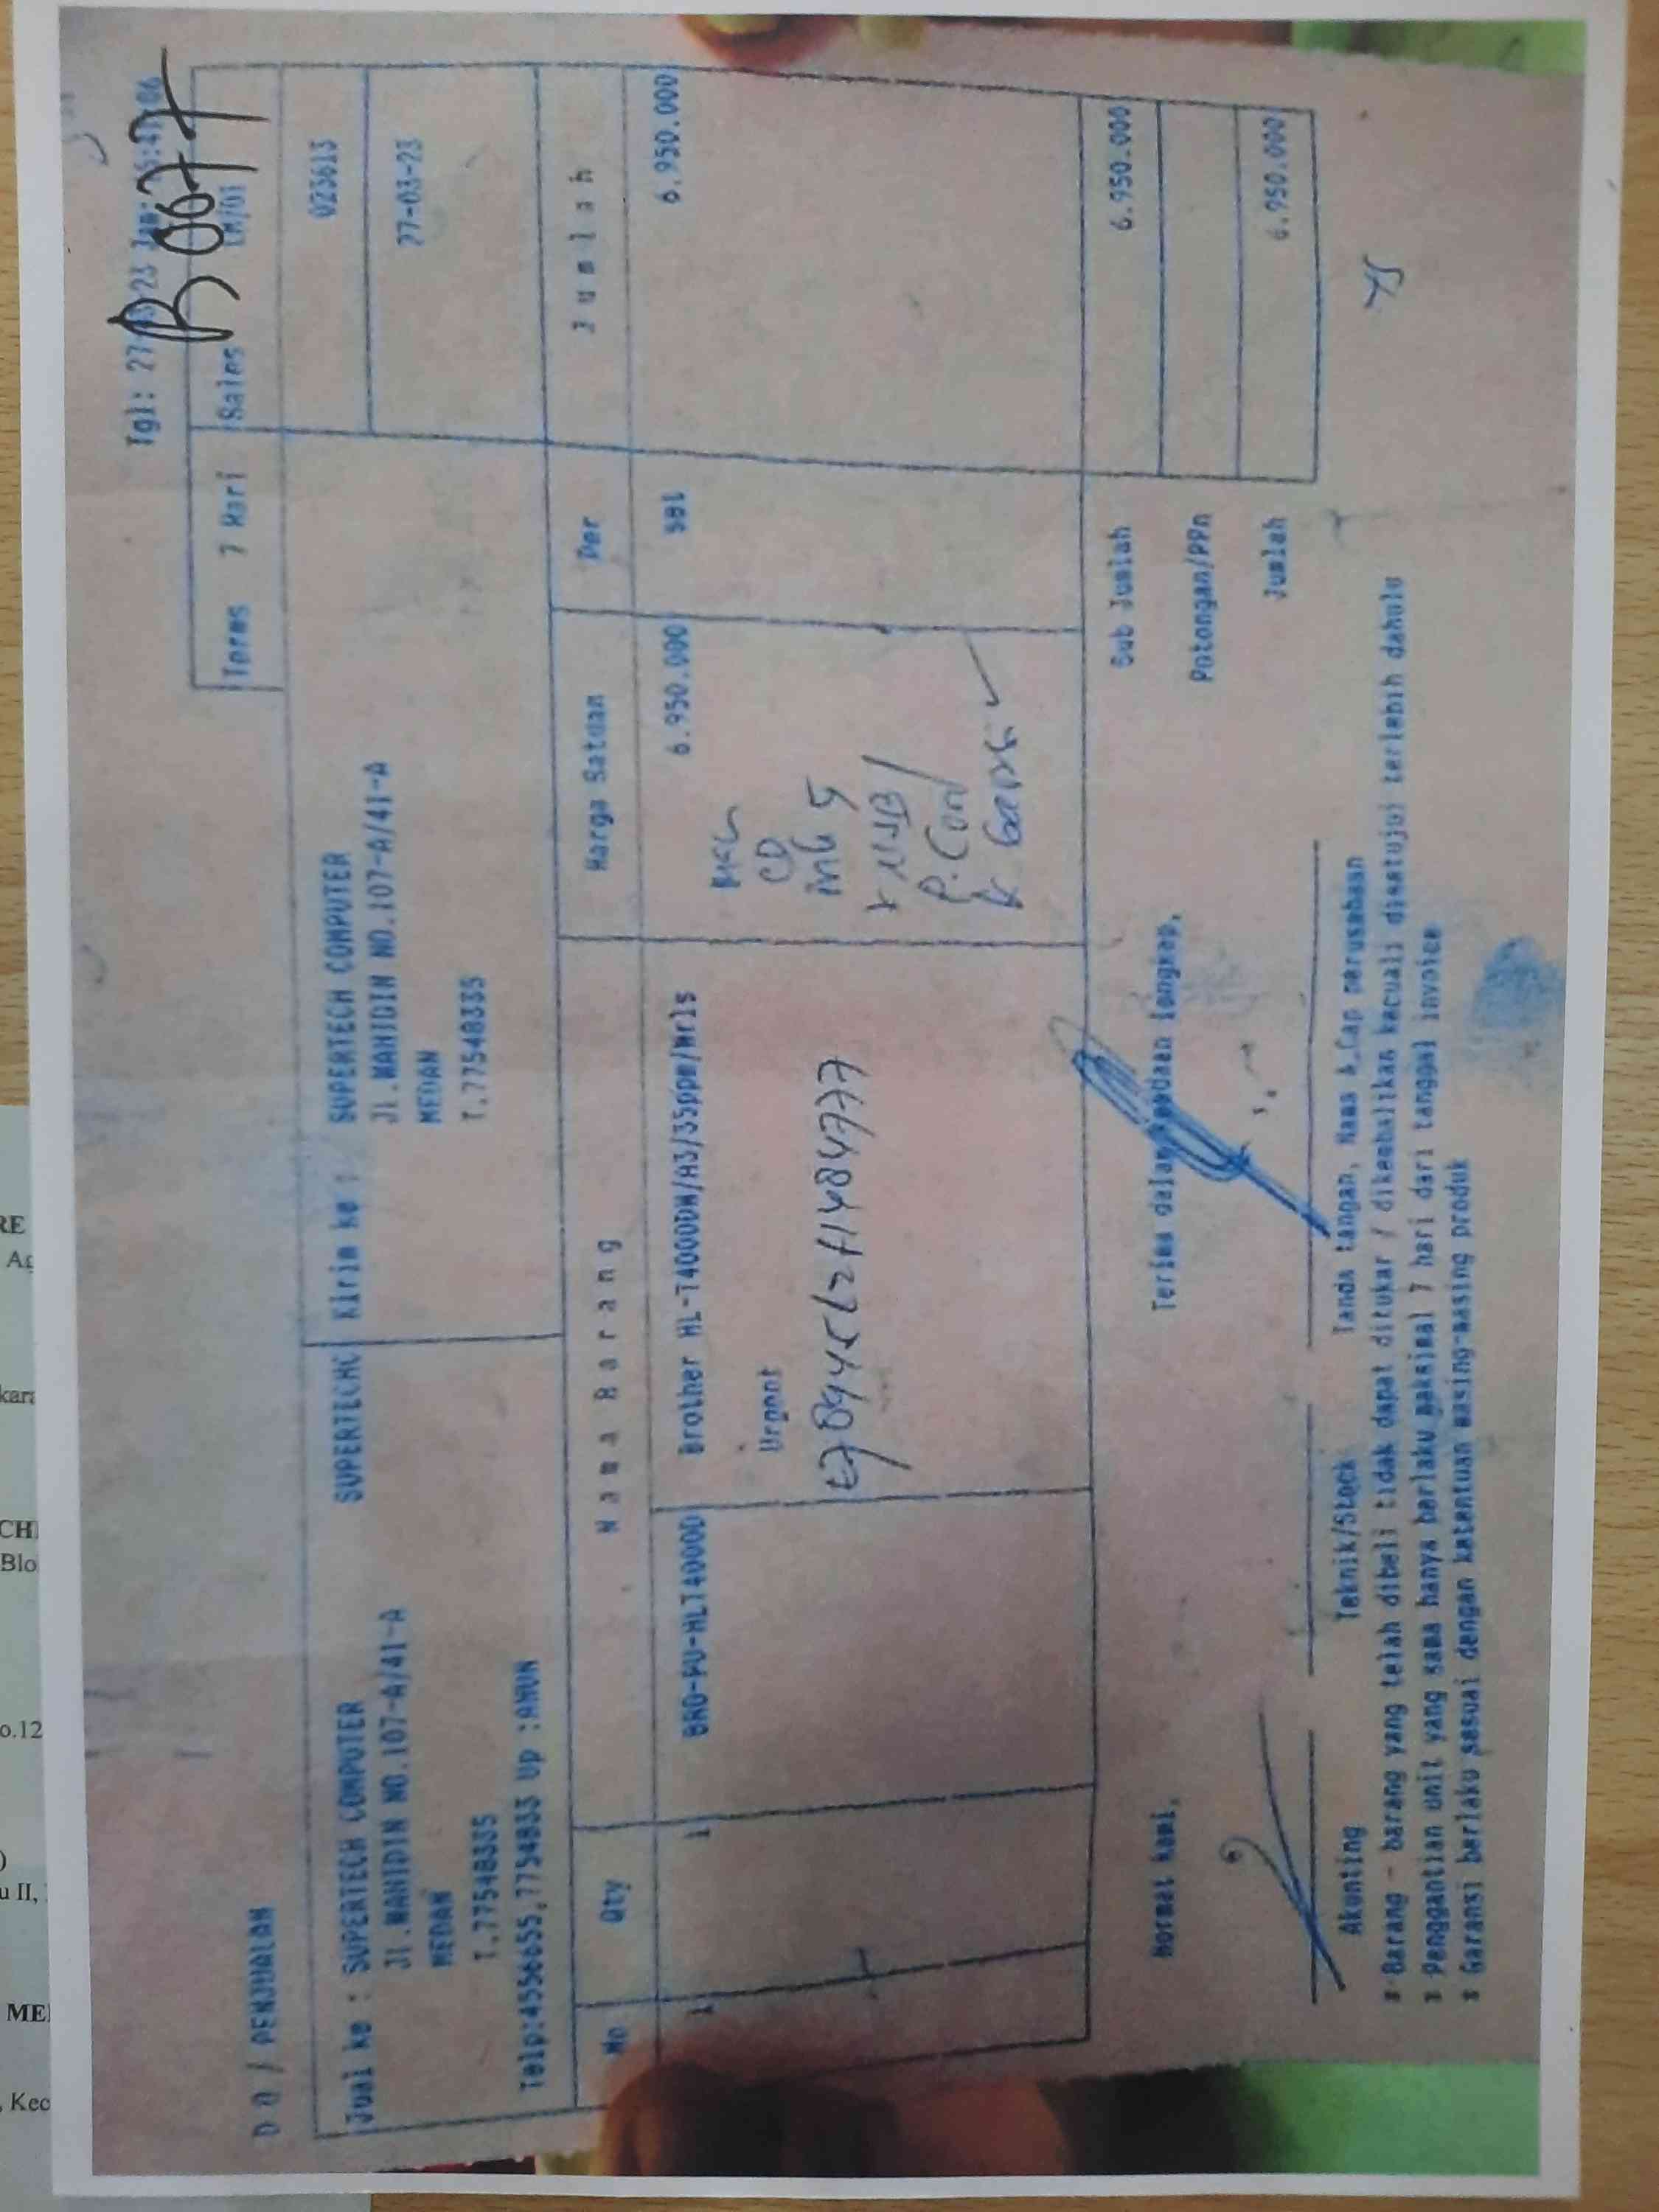 Tgl: 27-03-23 Jam:
B0677
D O / PENJUALAN
Terms 7 Hari
Sales LM/01
Jual ke : SUPERTECH COMPUTER SUPERTECHC
Jl.WAHIDIN NO.107-A/41-A
MEDAN
T.77548335
Telp:4556655,7754833 Up :AHUN
Kirim ke : SUPERTECH COMPUTER
Jl.WAHIDIN NO.107-A/41-A
MEDAN
T.77548335
023613
27-03-23
No Qty N a m a B a r a n g Harga Satuan Per J u m l a h
1 1 BRO-PU-HLT4000D Brother HL-T4000DW/A3/35ppm/Wrls 6.950.000 set 6.950.000
Urgent
CD
K Garansi
Sub Jumlah 6.950.000
Potongan/PPn
Jumlah 6.950.000
Hormat kami,
Terima dalam keadaan lengkap,
Akunting
Teknik/Stock
Tanda tangan, Nama & Cap perusahaan
* Barang - barang yang telah dibeli tidak dapat ditukar / dikembalikan kecuali disetujui terlebih dahulu
* Penggantian unit yang sama hanya berlaku maksimal 7 hari dari tanggal invoice
* Garansi berlaku sesuai dengan ketentuan masing-masing produk
RE
CH
Blo
o.12
u II,
ME
, Kec